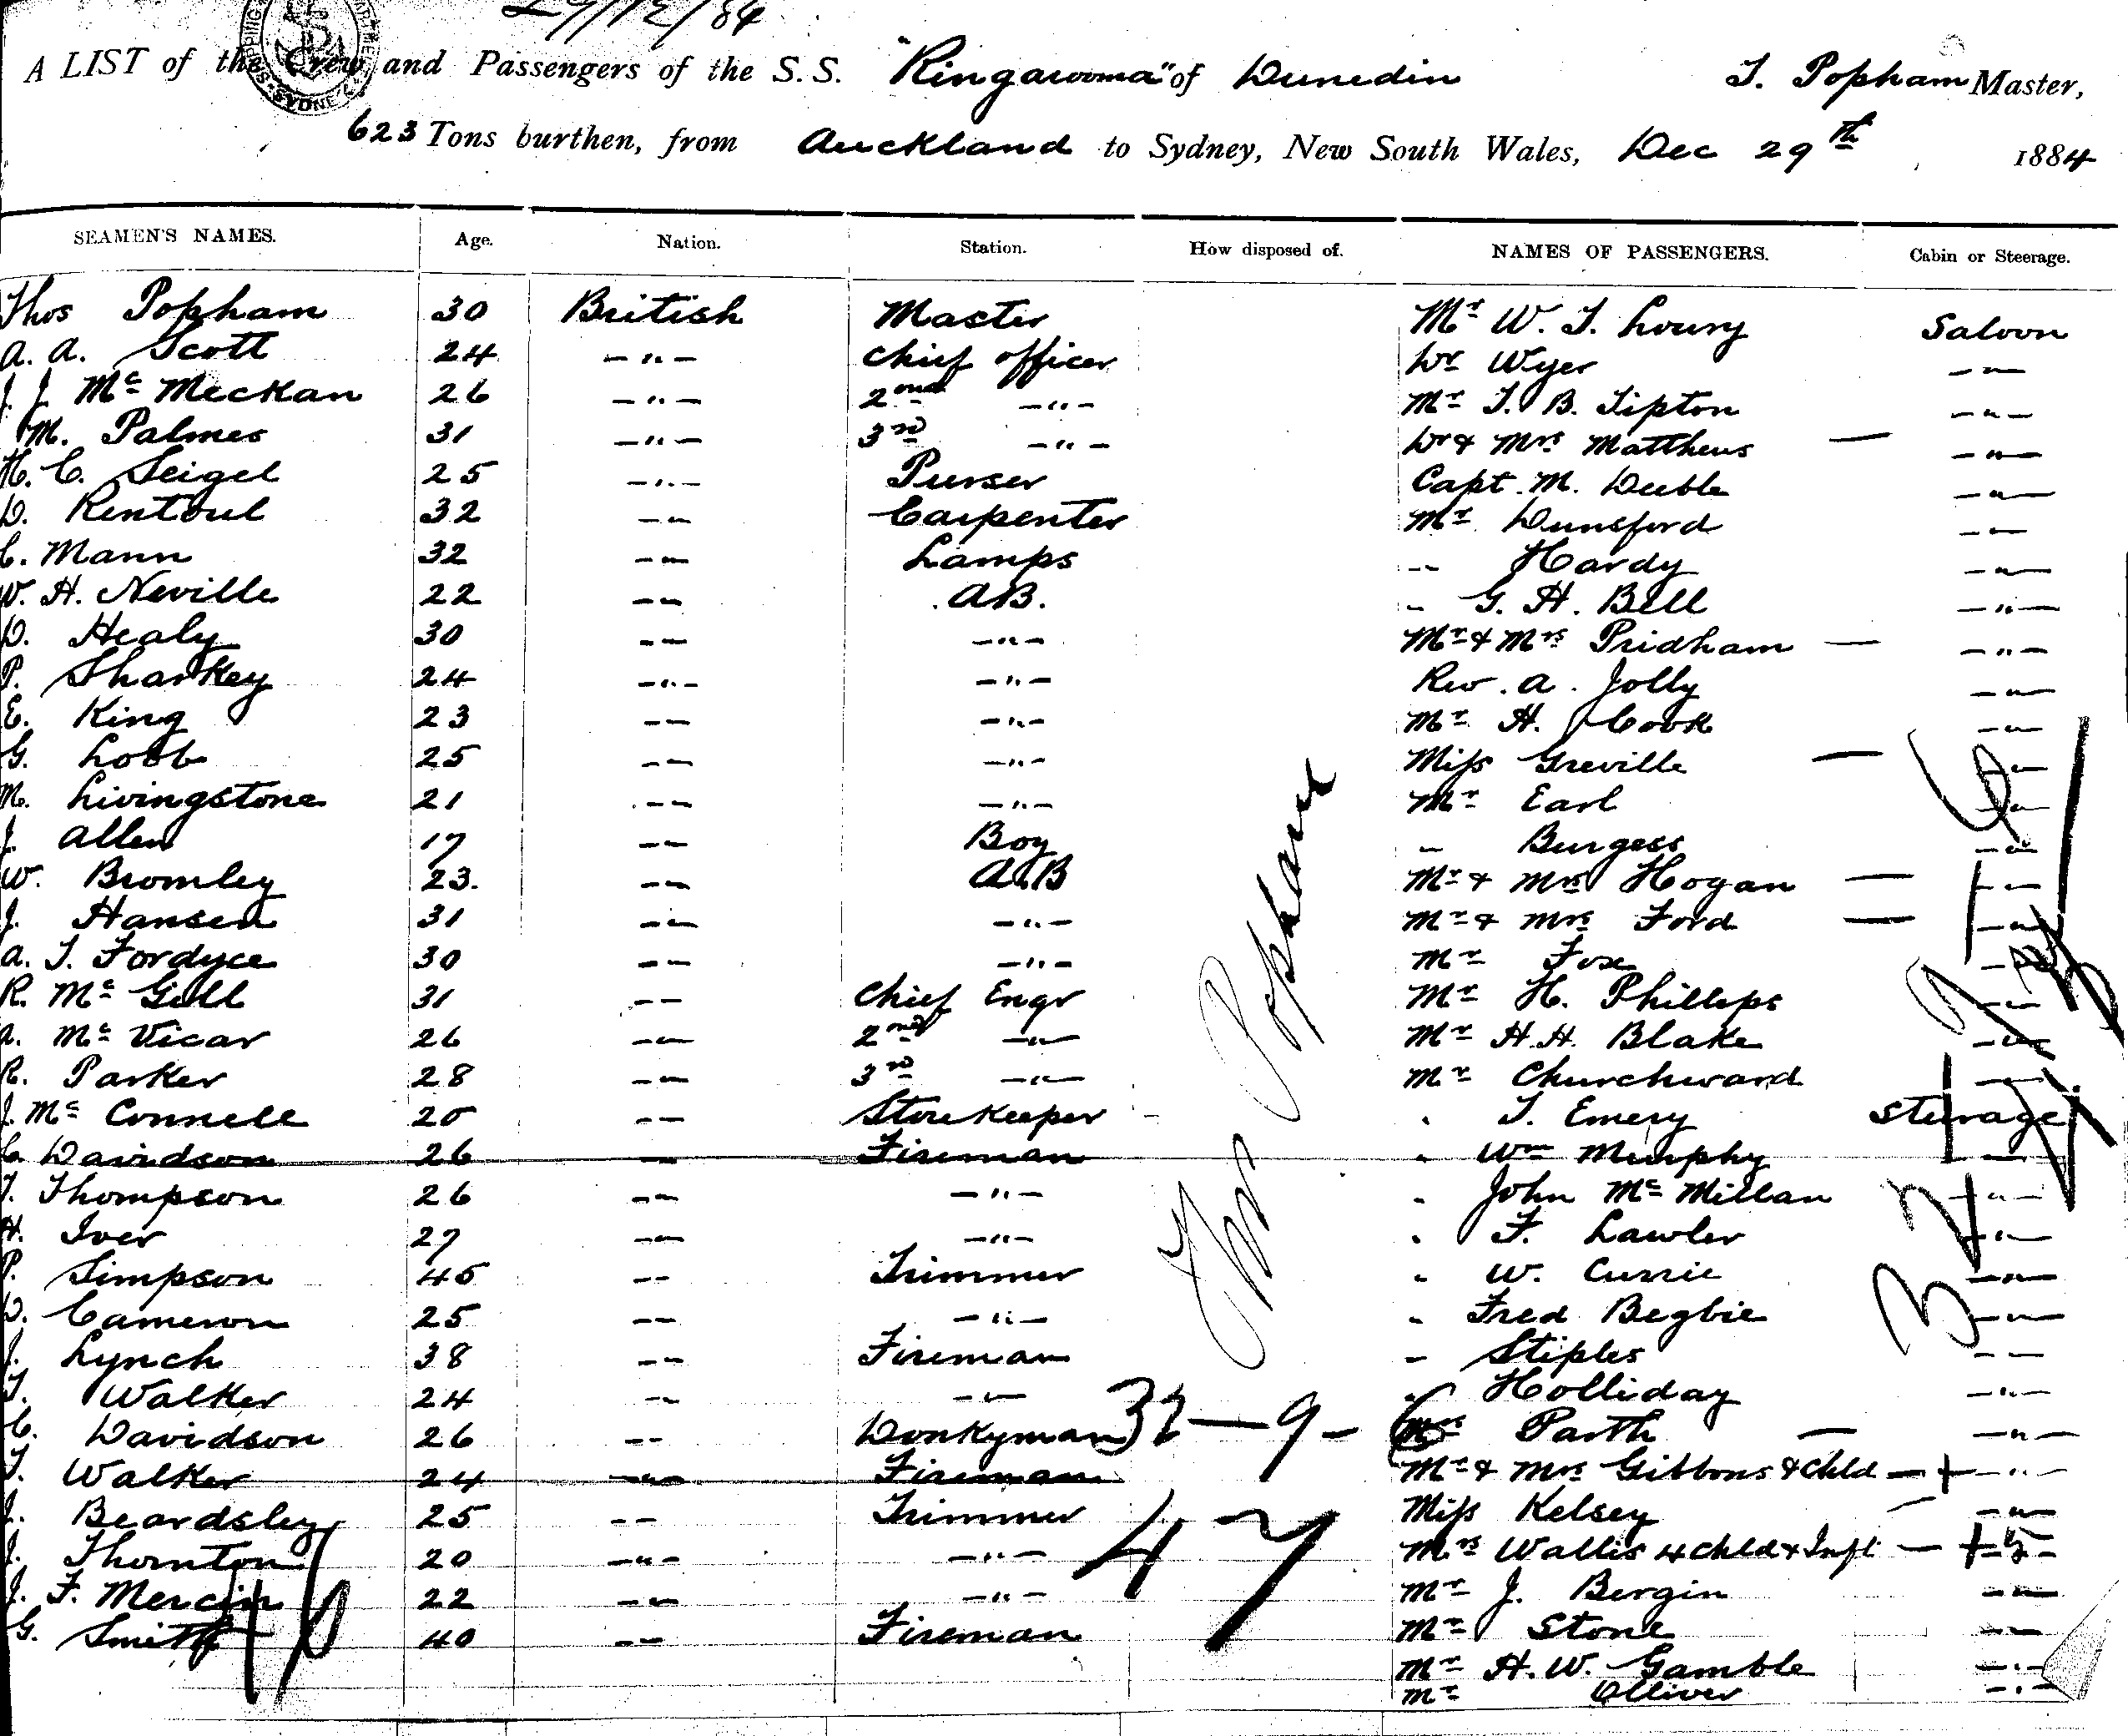 29/12/84
A LIST of the Crew and Passengers of the S.S. "Ringarooma" of Dunedin T. Popham Master,
623 Tons burthen, from Auckland to Sydney, New South Wales, Dec 29th 1884
SEAMEN'S NAMES. Age. Nation. Station. How disposed of. NAMES OF PASSENGERS. Cabin or Steerage.
Thos Popham 30 British Master Mr W. T. Loury Saloon
A. A. Scott 24 —"— Chief officer Dr Wyer —"—
J. J. Mc Meckan 26 —"— 2nd —"— Mr T. B. Tipton —"—
M. Palmer 31 —"— 3rd —"— Dr & Mrs Matthews — —"—
H. C. Seigel 25 —"— Purser Capt. M. Deeble —"—
D. Rentoul 32 —"— Carpenter Mr Dunsford —"—
C. Mann 32 —"— Lamps " Hardy —"—
W. H. Neville 22 —"— A.B. " G. H. Bell —"—
D. Healy 30 —"— —"— Mr & Mrs Pridham — —"—
P. Sharkey 24 —"— —"— Rev. A. Jolly —"—
E. King 23 —"— —"— Mr H. Cook —"—
G. Lobb 25 —"— —"— Miss Greville — —"—
M. Livingstone 21 —"— —"— Mr Earl —"—
J. Allen 17 —"— Boy " Burgess —"—
W. Bromley 23. —"— A.B Mr & Mrs Hogan — —"—
J. Hansen 31 —"— —"— Mr & Mrs Ford — —"—
A. T. Fordyce 30 —"— —"— Mr Fox —"—
R. Mc Gill 31 —"— Chief Engr Mr H. Phillips —"—
A. Mc Vicar 26 —"— 2nd —"— Mr H. H. Blake —"—
R. Parker 28 —"— 3rd —"— Mr Churchward —"—
J. Mc Connell 20 —"— Storekeeper " T. Emery Steerage
C. Davidson 26 —"— Fireman " Wm Murphy —"—
T. Thompson 26 —"— —"— " John Mc Millan —"—
H. Iver 27 —"— —"— " F. Lawler —"—
P. Simpson 45 —"— Trimmer " W. Currie —"—
D. Cameron 25 —"— —"— " Fred Begbie —"—
J. Lynch 38 —"— Fireman " Stiples —"—
T. Walker 24 —"— —"— " Holliday —"—
C. Davidson 26 —"— Donkyman Mrs Parth — —"—
T. Walker 24 —"— Fireman Mr & Mrs Gibbons & Chld — —"—
J. Beardsley 25 —"— Trimmer Miss Kelsey — —"—
J. Thornton 20 —"— —"— Mrs Wallis 4 Chld & Inft — —"—
J. F. Mercin 22 —"— —"— Mr J. Bergin —"—
G. Smith 40 —"— Fireman Mr Stone —"—
Mr H. W. Gamble —"—
Mr Olliver —"—
Thos Popham
32 — 9 — 6
47